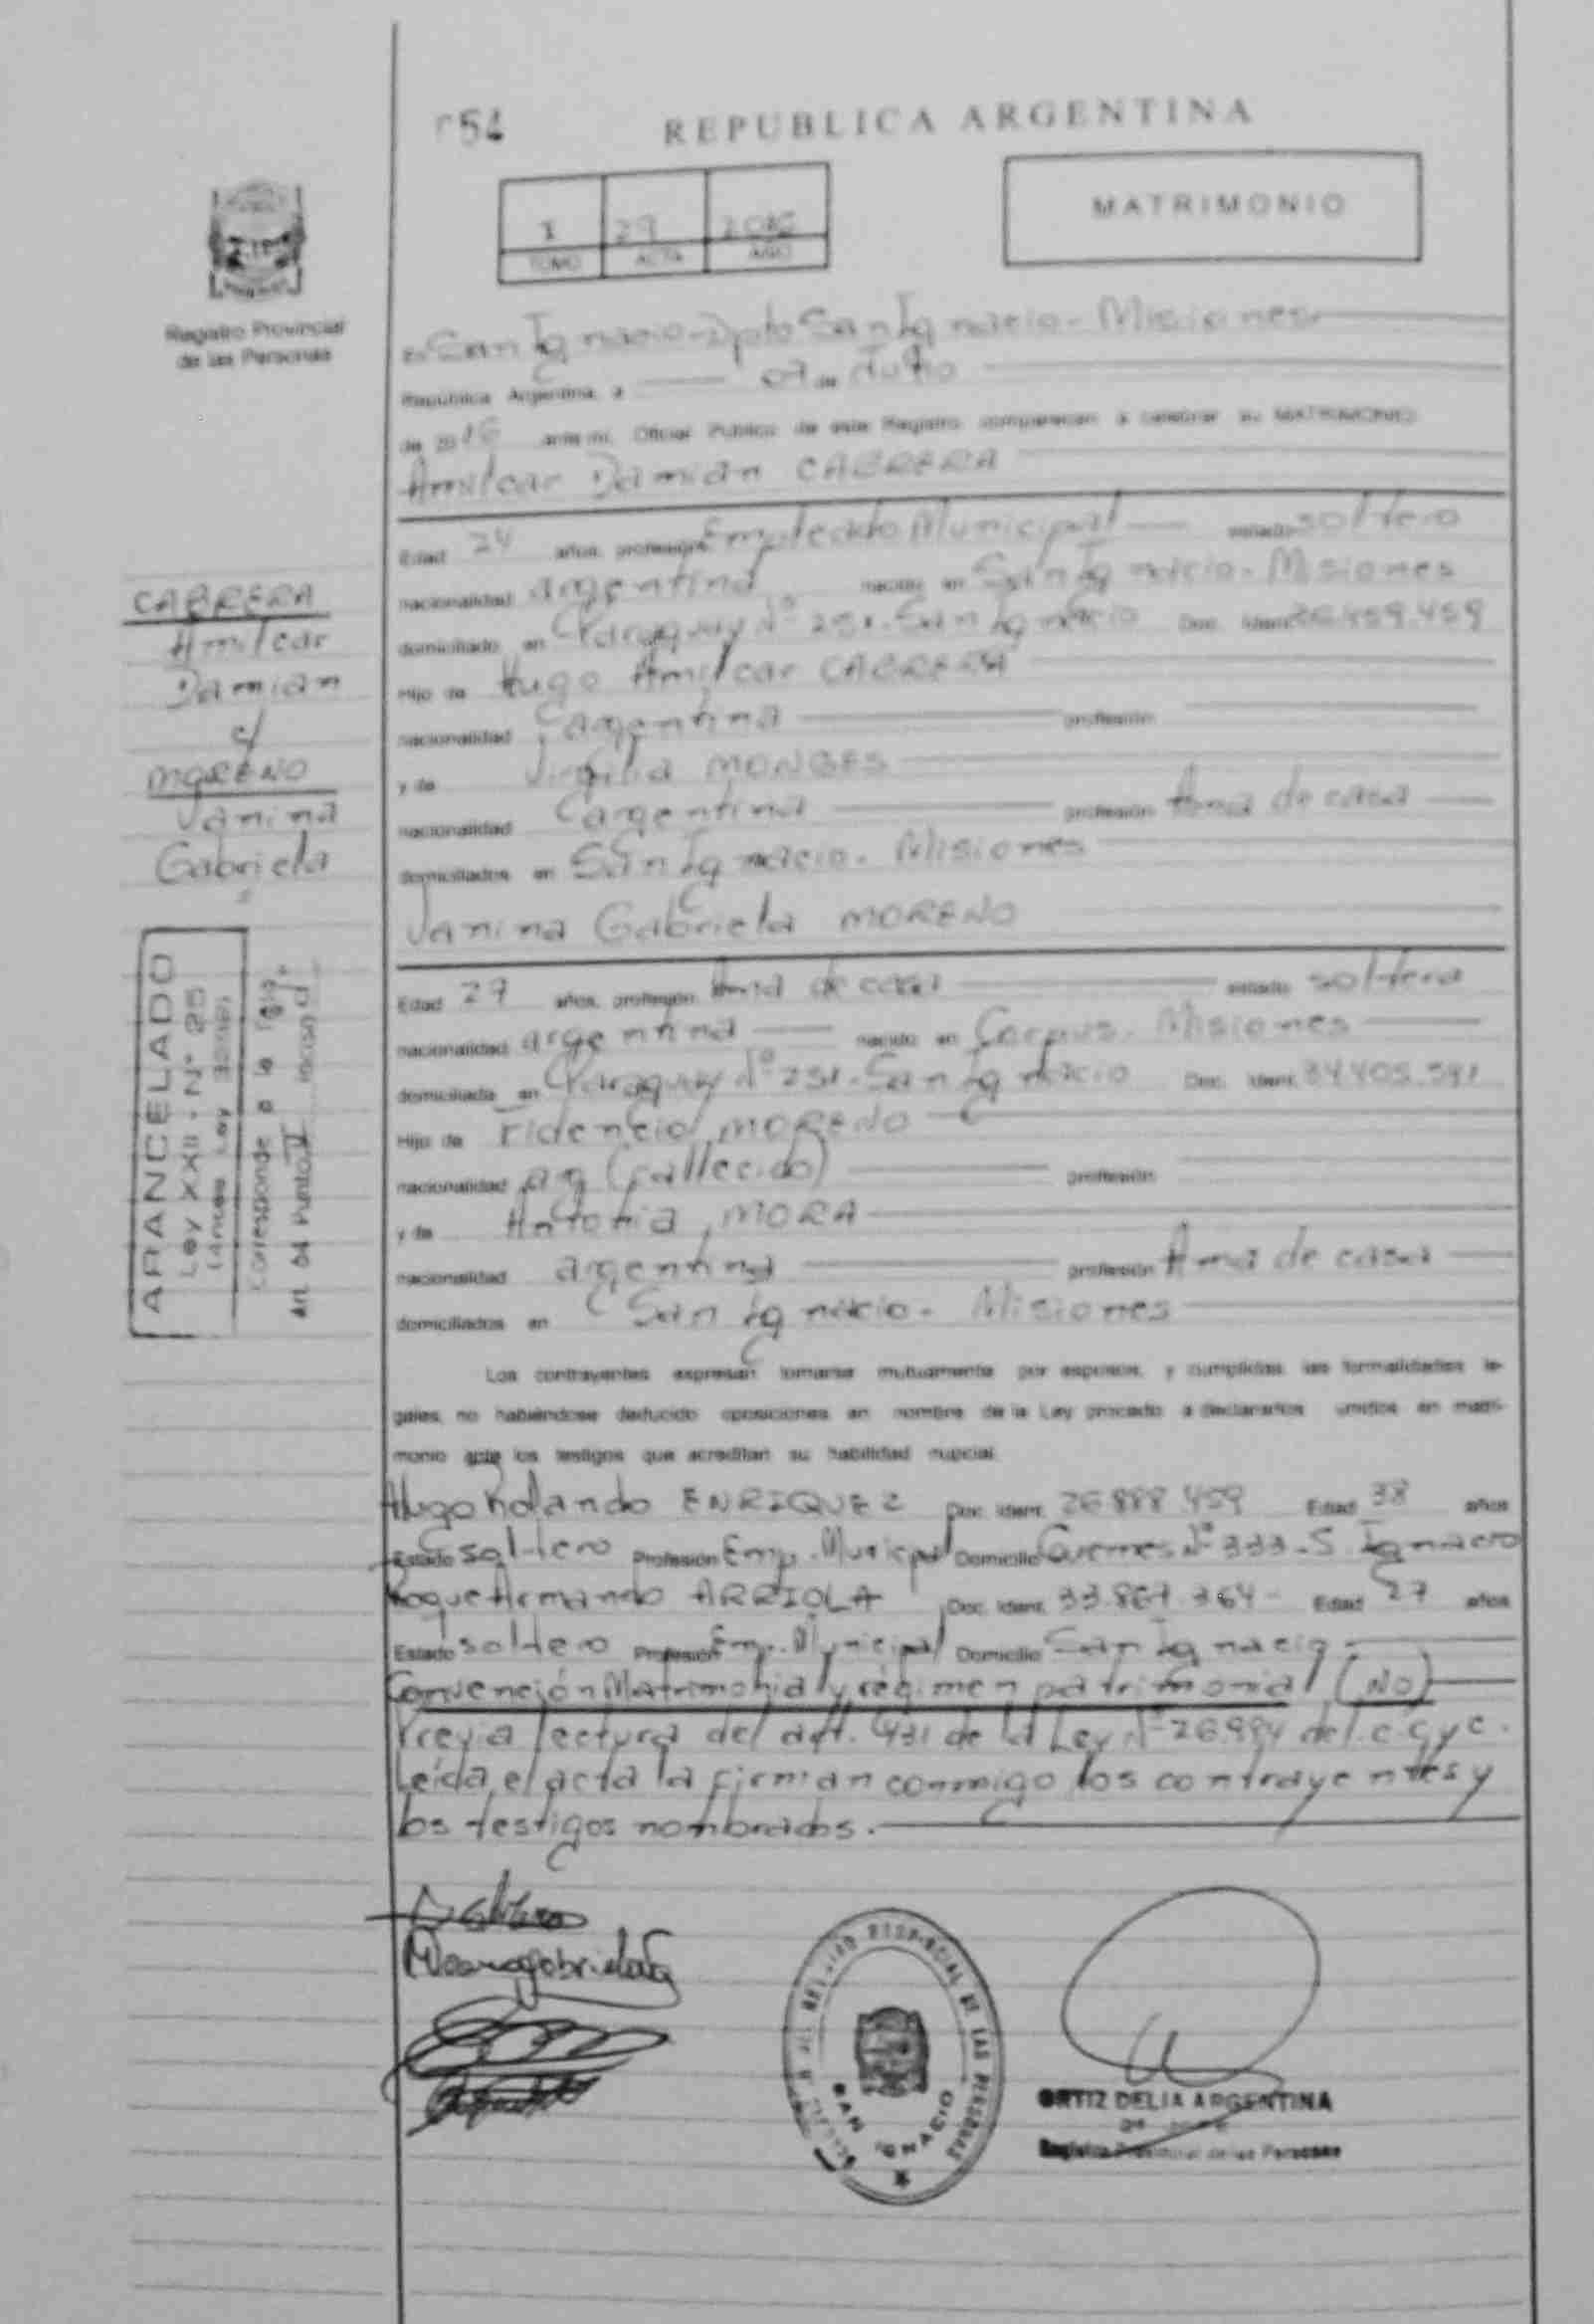 REPUBLICA ARGENTINA
MATRIMONIO
I 29
TOMO ACTA AÑO
Registro Provincial
de las Personas
San Ignacio - Dpto San Ignacio - Misiones
República Argentina, a 07 de Julio
de 2016 ante mí, Oficial Público de este Registro comparecen a celebrar su MATRIMONIO
Amilcar Damian CABRERA
Edad 24 años, profesión Empleado Municipal estado soltero
nacionalidad argentina nacido en San Ignacio - Misiones
domiciliado en Paraguay Nº San Ignacio Doc. Ident.
Hijo de Hugo Amilcar CABRERA
nacionalidad argentina profesión
y de MONGES
nacionalidad argentina profesión Ama de casa
domiciliados en San Ignacio - Misiones
Janina Gabriela MORENO
Edad 27 años, profesión Ama de casa estado soltera
nacionalidad argentina nacido en Corpus - Misiones
domiciliada en Paraguay Nº San Ignacio Doc. Ident. 34.405.591
Hijo de Fidencio MORENO
nacionalidad arg (fallecido) profesión
y de Antonia MORA
nacionalidad argentina profesión Ama de casa
domiciliados en San Ignacio - Misiones
Los contrayentes expresan tomarse mutuamente por esposos, y cumplidas las formalidades le-
gales, no habiéndose deducido oposiciones en nombre de la Ley procedo a declararlos unidos en matri-
monio ante los testigos que acreditan su habilidad nupcial.
Hugo Rolando ENRIQUEZ Doc. Ident. 26.888.459 Edad 38 años
Estado soltero Profesión Emp. Municipal Domicilio Guemes Nº 333 - S. Ignacio
Roque Armando ARRIOLA Doc. Ident. 33.867.364 - Edad 27 años
Estado soltero Profesión Emp. Municipal Domicilio San Ignacio -
Convención Matrimonial y régimen patrimonial (NO)
Previa lectura del art. 431 de la Ley Nº 26.994 del C.C y C.
Leída el acta la firman conmigo los contrayentes y
los testigos nombrados.
CABRERA
Amilcar
Damian
c/
MORENO
Janina
Gabriela
ARANCELADO
Ley XXII - Nº 25
Corresponde a la
Art. 64 Punto IV inciso d
SAN IGNACIO
ORTIZ DELIA ARGENTINA
Registro Provincial de las Personas